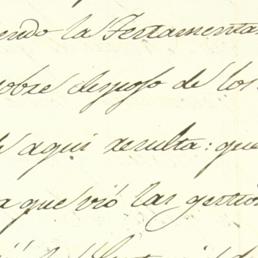 endo la Testamenta
sobre despojo de los
aqui resulta: que
a que vió las gestio